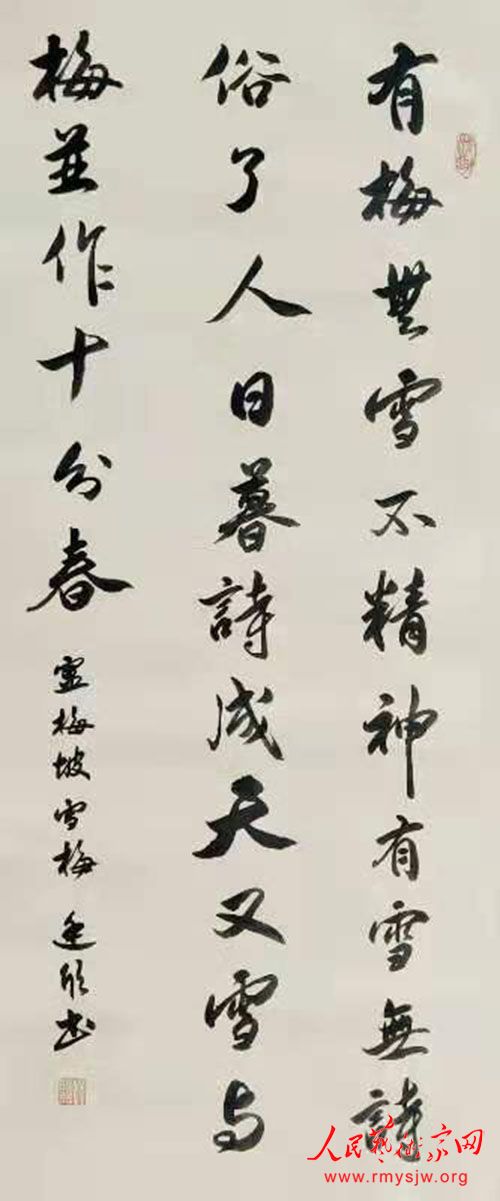 有梅無雪不精神有雪無詩
俗了人日暮詩成天又雪与
梅並作十分春
盧梅坡雪梅
书
人民艺术家网
www.rmysjw.org